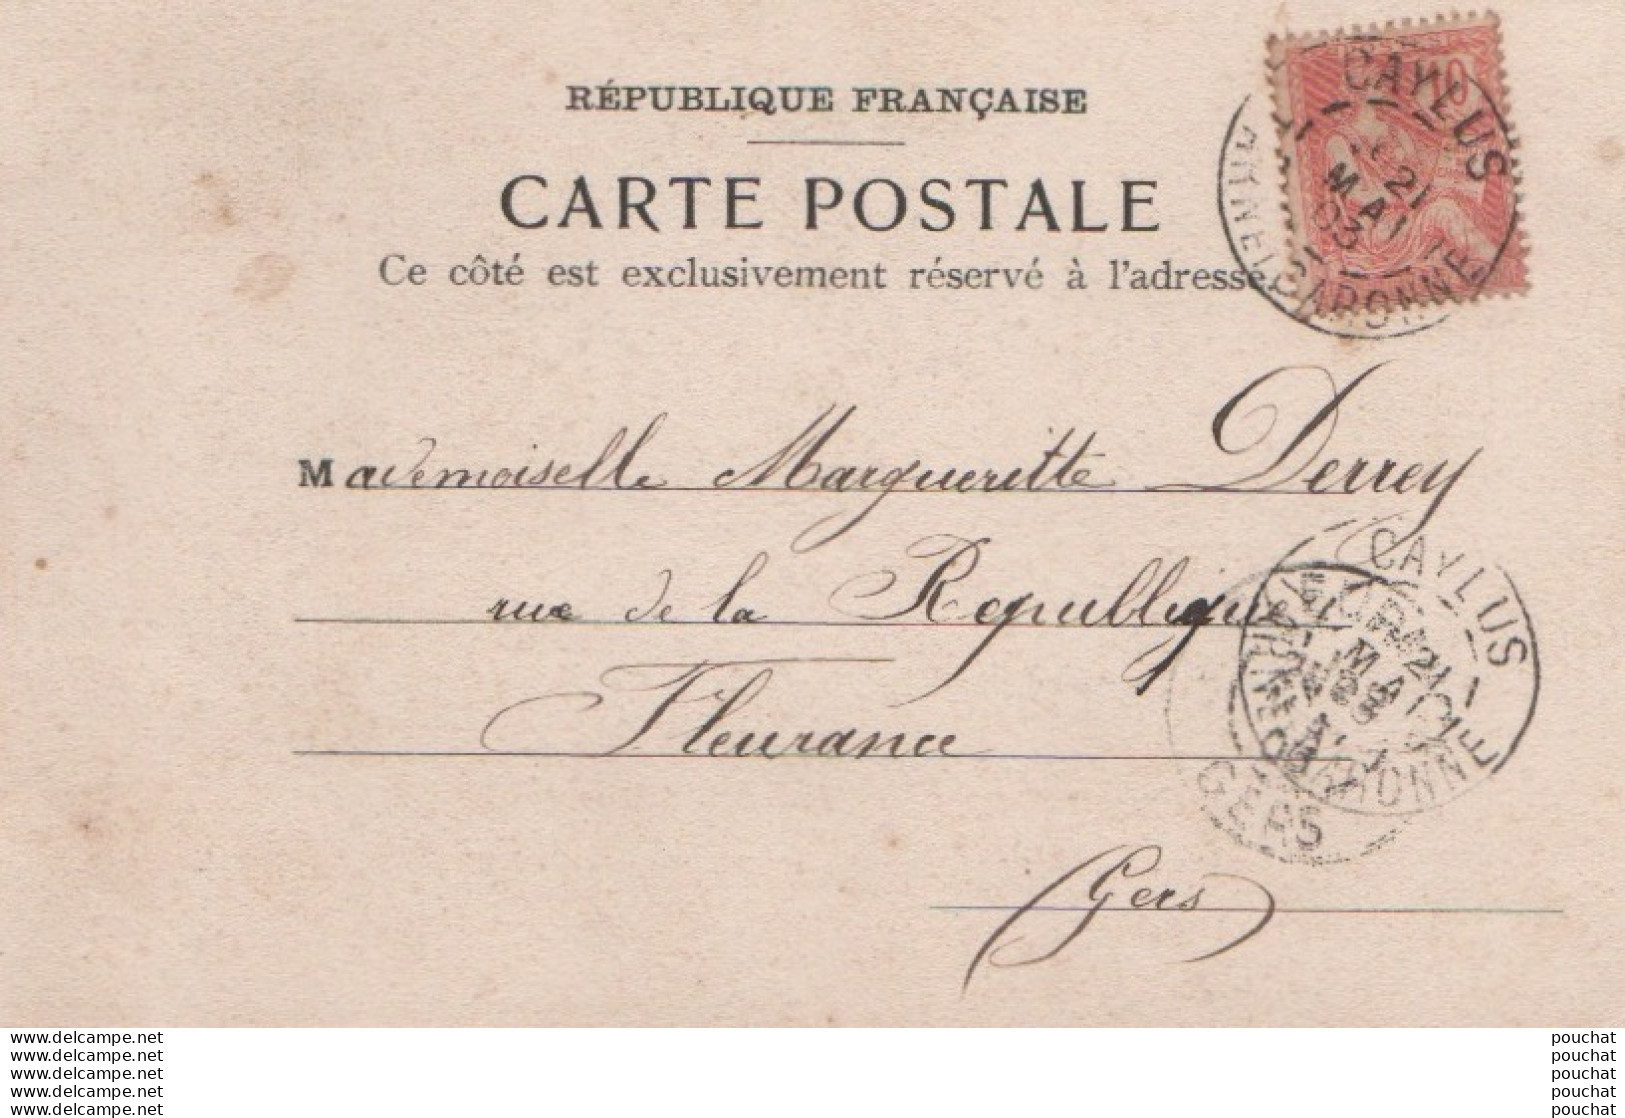 RÉPUBLIQUE FRANÇAISE
CARTE POSTALE
Ce côté est exclusivement réservé à l'adresse
10
CAYLUS
21
MAI
03
GARONNE
Mademoiselle Margueritte Derrey
rue de la Republique
Fleurance
Gers
CAYLUS
21
MAI
GARONNE
GERS
www.delcampe.net pouchat
www.delcampe.net pouchat
www.delcampe.net pouchat
www.delcampe.net pouchat
www.delcampe.net pouchat